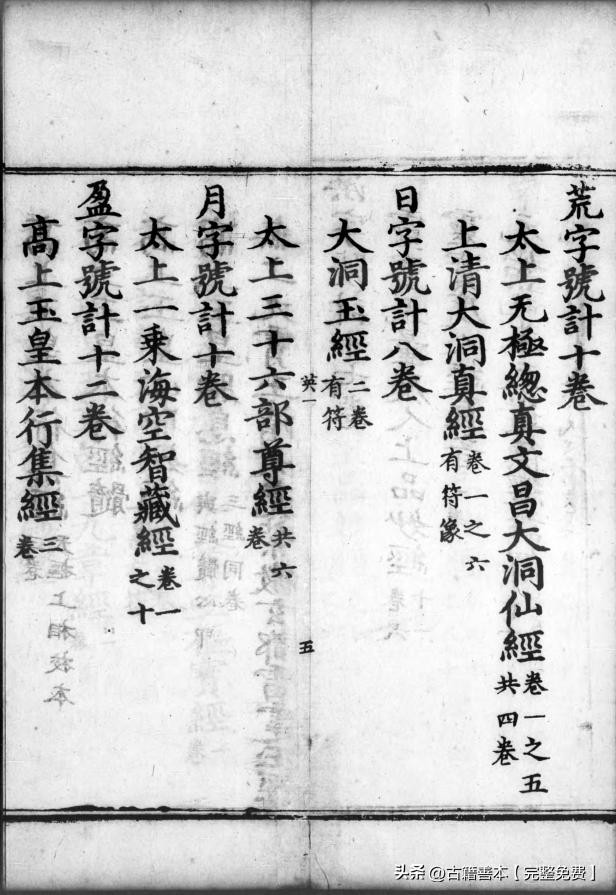 荒字號計十卷
太上无極總真文昌大洞仙經卷一之五共四卷
上清大洞真經卷一之六有符像
日字號計八卷
大洞玉經二卷有符
英一
五
太上三十六部尊經共六卷
月字號計十卷
太上一乗海空智藏經卷一之十
盈字號計十二卷
髙上玉皇本行集經三卷
头条@古籍善本【完整免费】